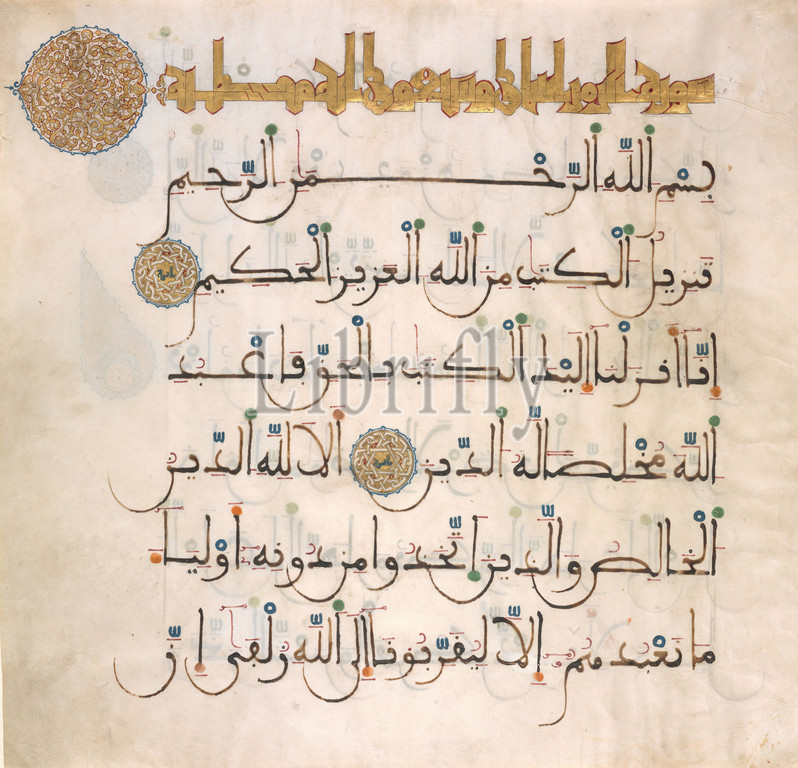 سورة الزمر وسبعون اية
بِسْمِ اللَّهِ الرَّحْمَنِ الرَّحِيمِ
تَنزِيلُ الْكِتَبِ مِنَ اللَّهِ الْعَزِيزِ الْحَكِيمِ
إِنَّا أَنزَلْنَا إِلَيْكَ الْكِتَبَ بِالْحَقِّ فَاعْبُدِ
اللَّهَ مُخْلِصًا لَّهُ الدِّينَ أَلَا لِلَّهِ الدِّينُ
الْخَالِصُ وَالَّذِينَ اتَّخَذُوا مِن دُونِهِ أَوْلِيَاءَ
مَا نَعْبُدُهُمْ إِلَّا لِيُقَرِّبُونَا إِلَى اللَّهِ زُلْفَى إِنَّ
Librifly